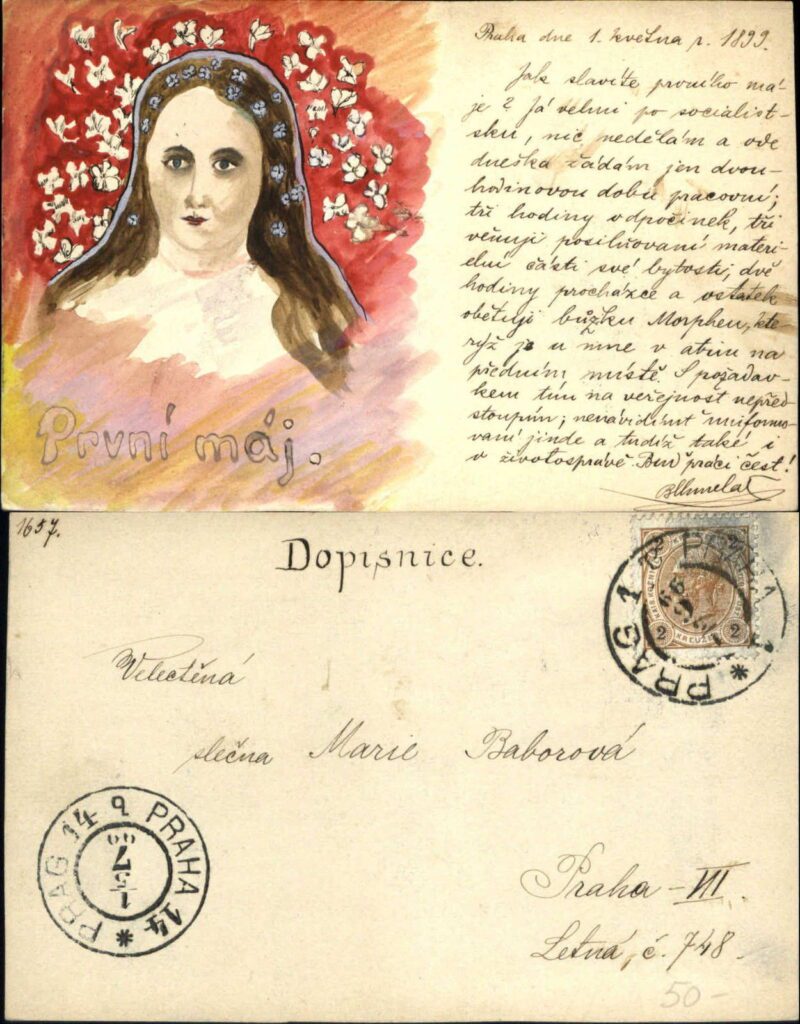 Praha dne 1. května r. 1899.
Jak slavíte prvního má-
je? Já velmi po socialist-
sku, nic nedělám a ode
dneška žádám jen dvou-
hodinovou dobu pracovní;
tři hodiny odpočinek, tři
věnuji posilňovaní materi-
elní části své bytosti, dvě
hodiny procházce a ostatek
obětuji bůžku Morpheu, kte-
rýž je u mne v úctě na
předním místě. S požadav-
kem tím na veřejnost nepřed-
stoupím; nenávidímť uniformo-
vaní jinde a tudíž také i
v životosprávě. Buď práci čest!
První máj.
1657.
Dopisnice.
PRAG 1 PRAHA
2 KREUZER 2
Velectěná
slečna Marie Baborová
PRAG 14 PRAHA 14
1/5 7 99
Praha - VII.
Letná, č. 748.
50-